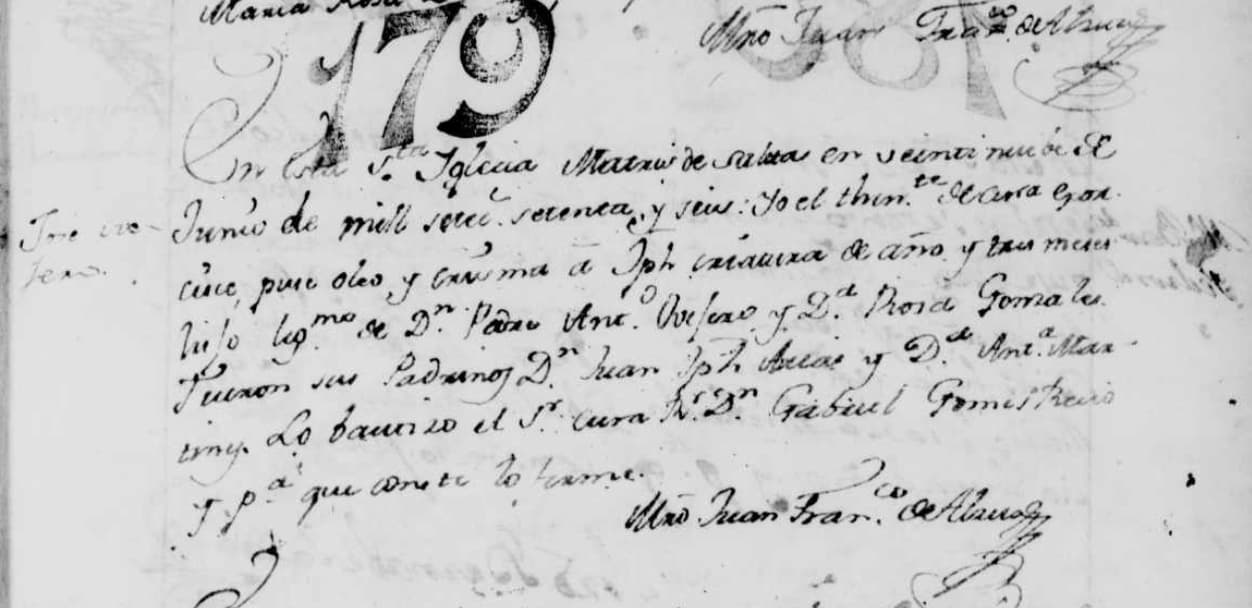 Maria Rosa
Mro Juan Fran.co de Alzuga
179
En esta S.ta Yglecia Matris de Salta en veintinuebe de
Junio de mill setec.s setenta, y seis: Yo el thin.te de cura Exor-
cice, puse oleo, y crisma â Jph criatura de año y tres meses
hijo leg.mo de D.n Pedro Ant.o y D.a Rosa Gomales.
Fueron sus Padrinos D.n Juan Jph Arias y D.a Ant.a Mar-
tinz. Lo bautizo el S.r cura R.r D.n Gabriel Gomes Recio
Y p.a que conste lo firme.
Mro Juan Fran.co de